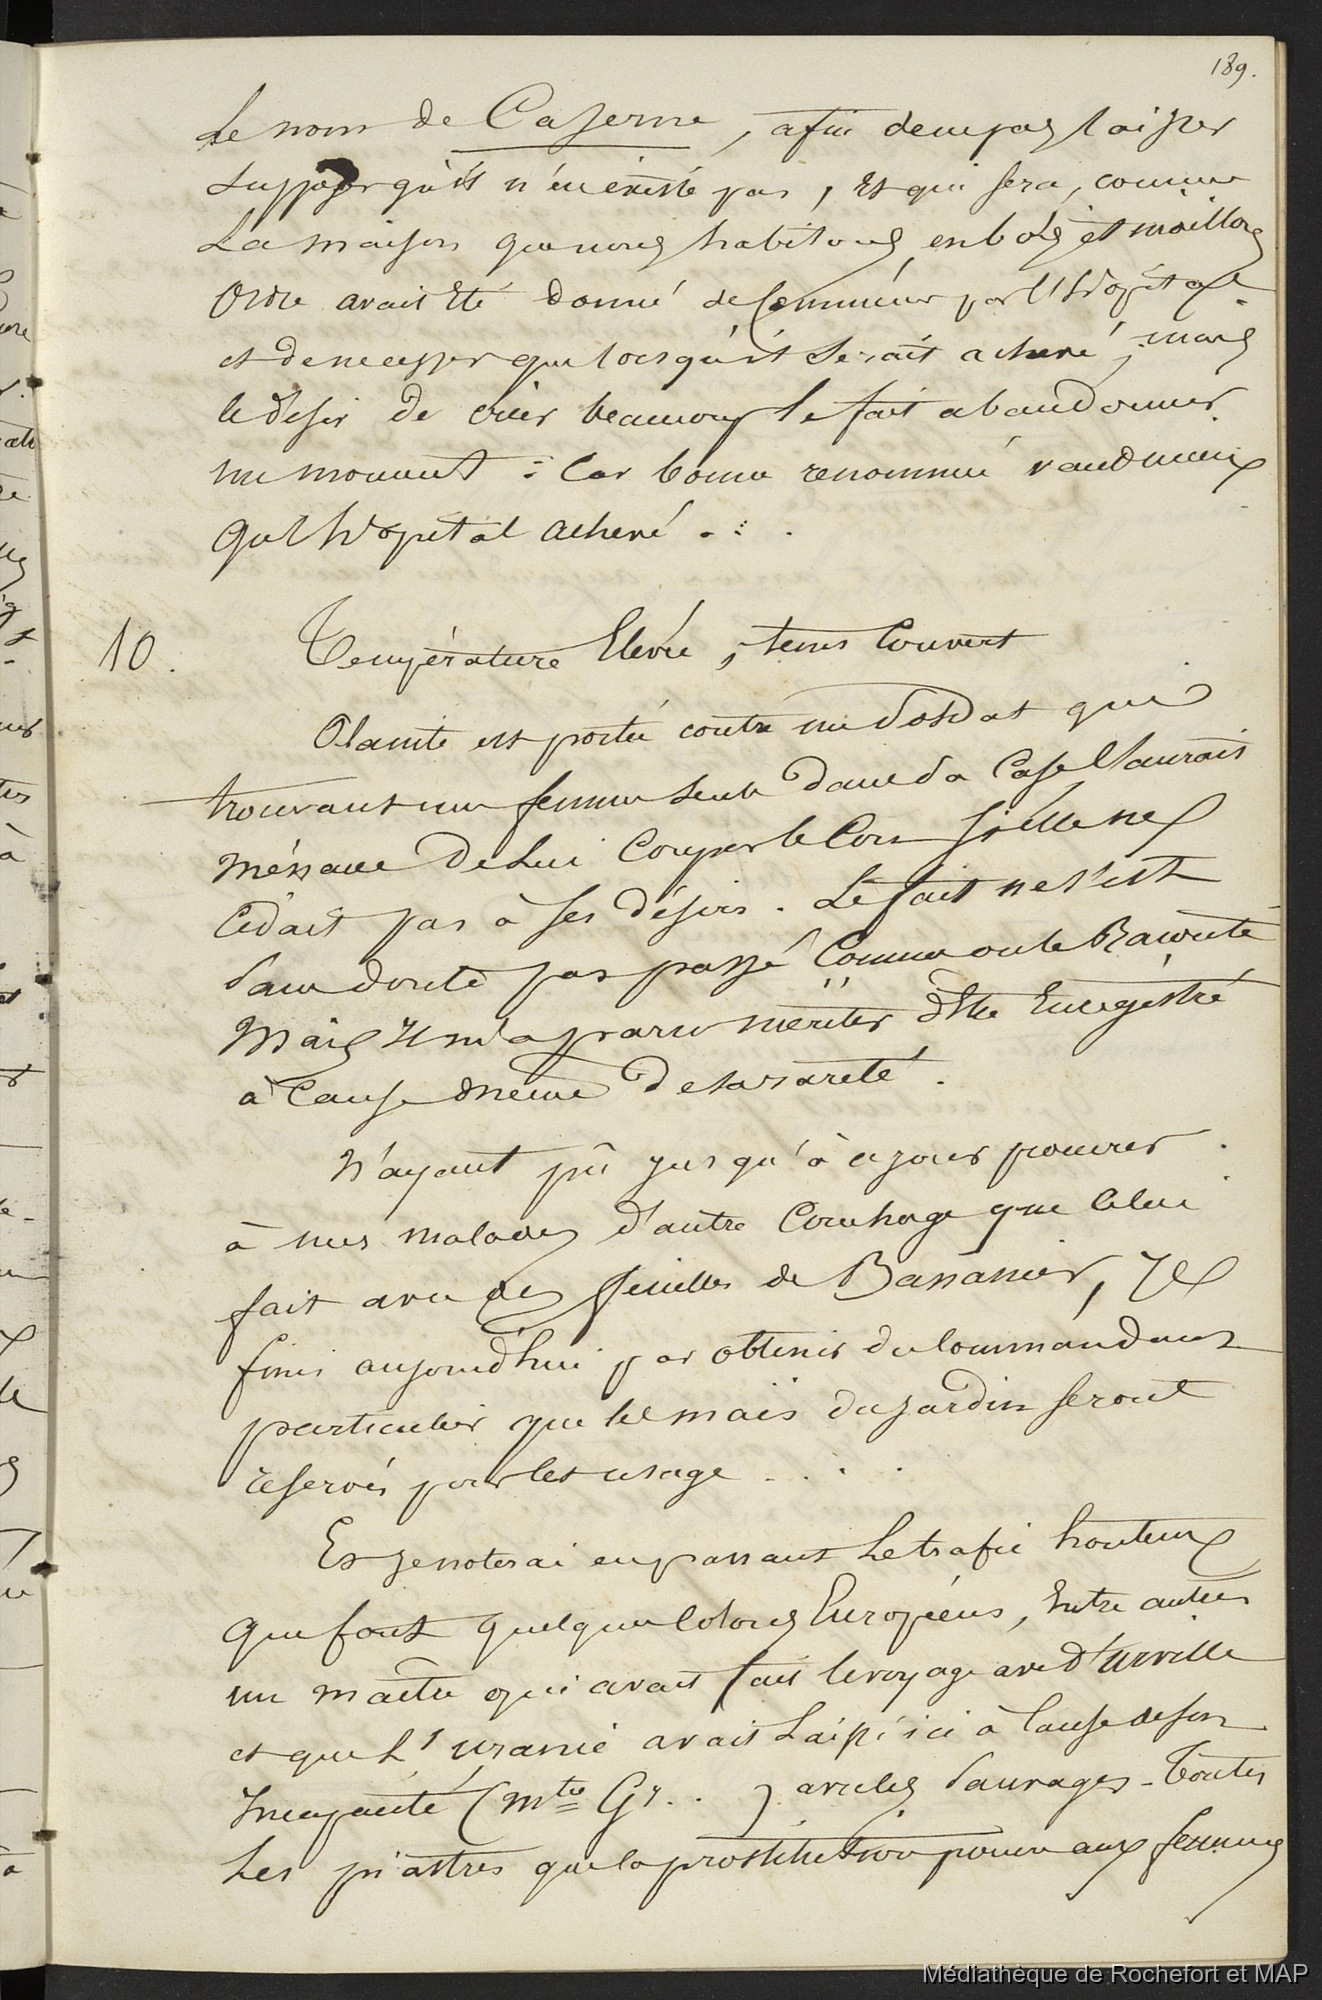 189.
Le nom de Caserne, afin de ne pas laisser
supposer qu'il n'en existe pas, et qui sera, comme
La maison que nous habitons, en bois et moillons
Ordre avait été donné de commencer par l'hôpital
et de ne cesser que lorsqu'il serait achevé; mais
le desir de créer beaucoup le fait abandonner
un moment : Car bonne renommée vaud mieux
Qu'l hôpital achevé . . .
10. Température Elevée, tems Couvert
Plainte est portée contre un Soldat qui
trouvant une femme seule dans sa Case l'aurait
ménacée de lui Couper le Cou si elle ne
Cédait pas à ses désirs. Le fait ne s'est
sans doute pas passé Comme on le Raconte
Mais il m'a paru mériter d'Etre Enregistré
à Cause même de sa rareté.
N'ayant pû jusqu'à ce jour procurer
à mes malades d'autre Couchage que Celui
fait avec des feuilles de Bananier, Je
finis aujourd'hui par obtenir du Commandant
particulier que les maïs du jardin seront
reservés pour cet usage . . . .
Et je noterai en passant le trafic honteux
Que font quelques Colons Européens, Entre autres
un maître qui avait fait le voyage avec d'urville
et que L'uranie avait laissé ici à Cause de son
Incapacité (Mtre Gr. . ) avec les Sauvages - Toutes
Les piastres que la prostitution procure aux femmes
Médiathèque de Rochefort et MAP